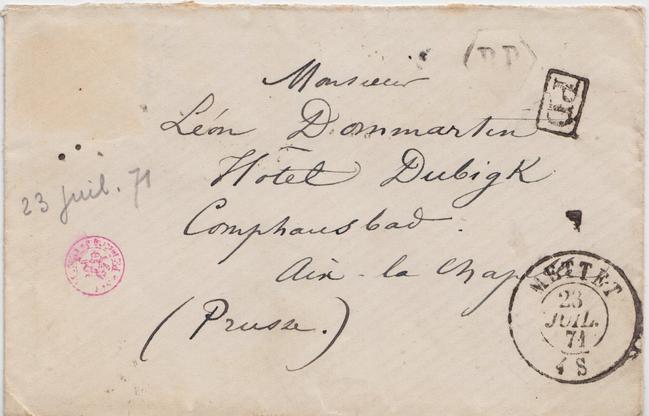 P.P.
PD
Monsieur
Léon Dommartin
Hôtel Dubigk
Comphausbad.
Aix-la Chap
(Prusse.)
23 juil. 71
METTET
23
JUIL.
71
4 S